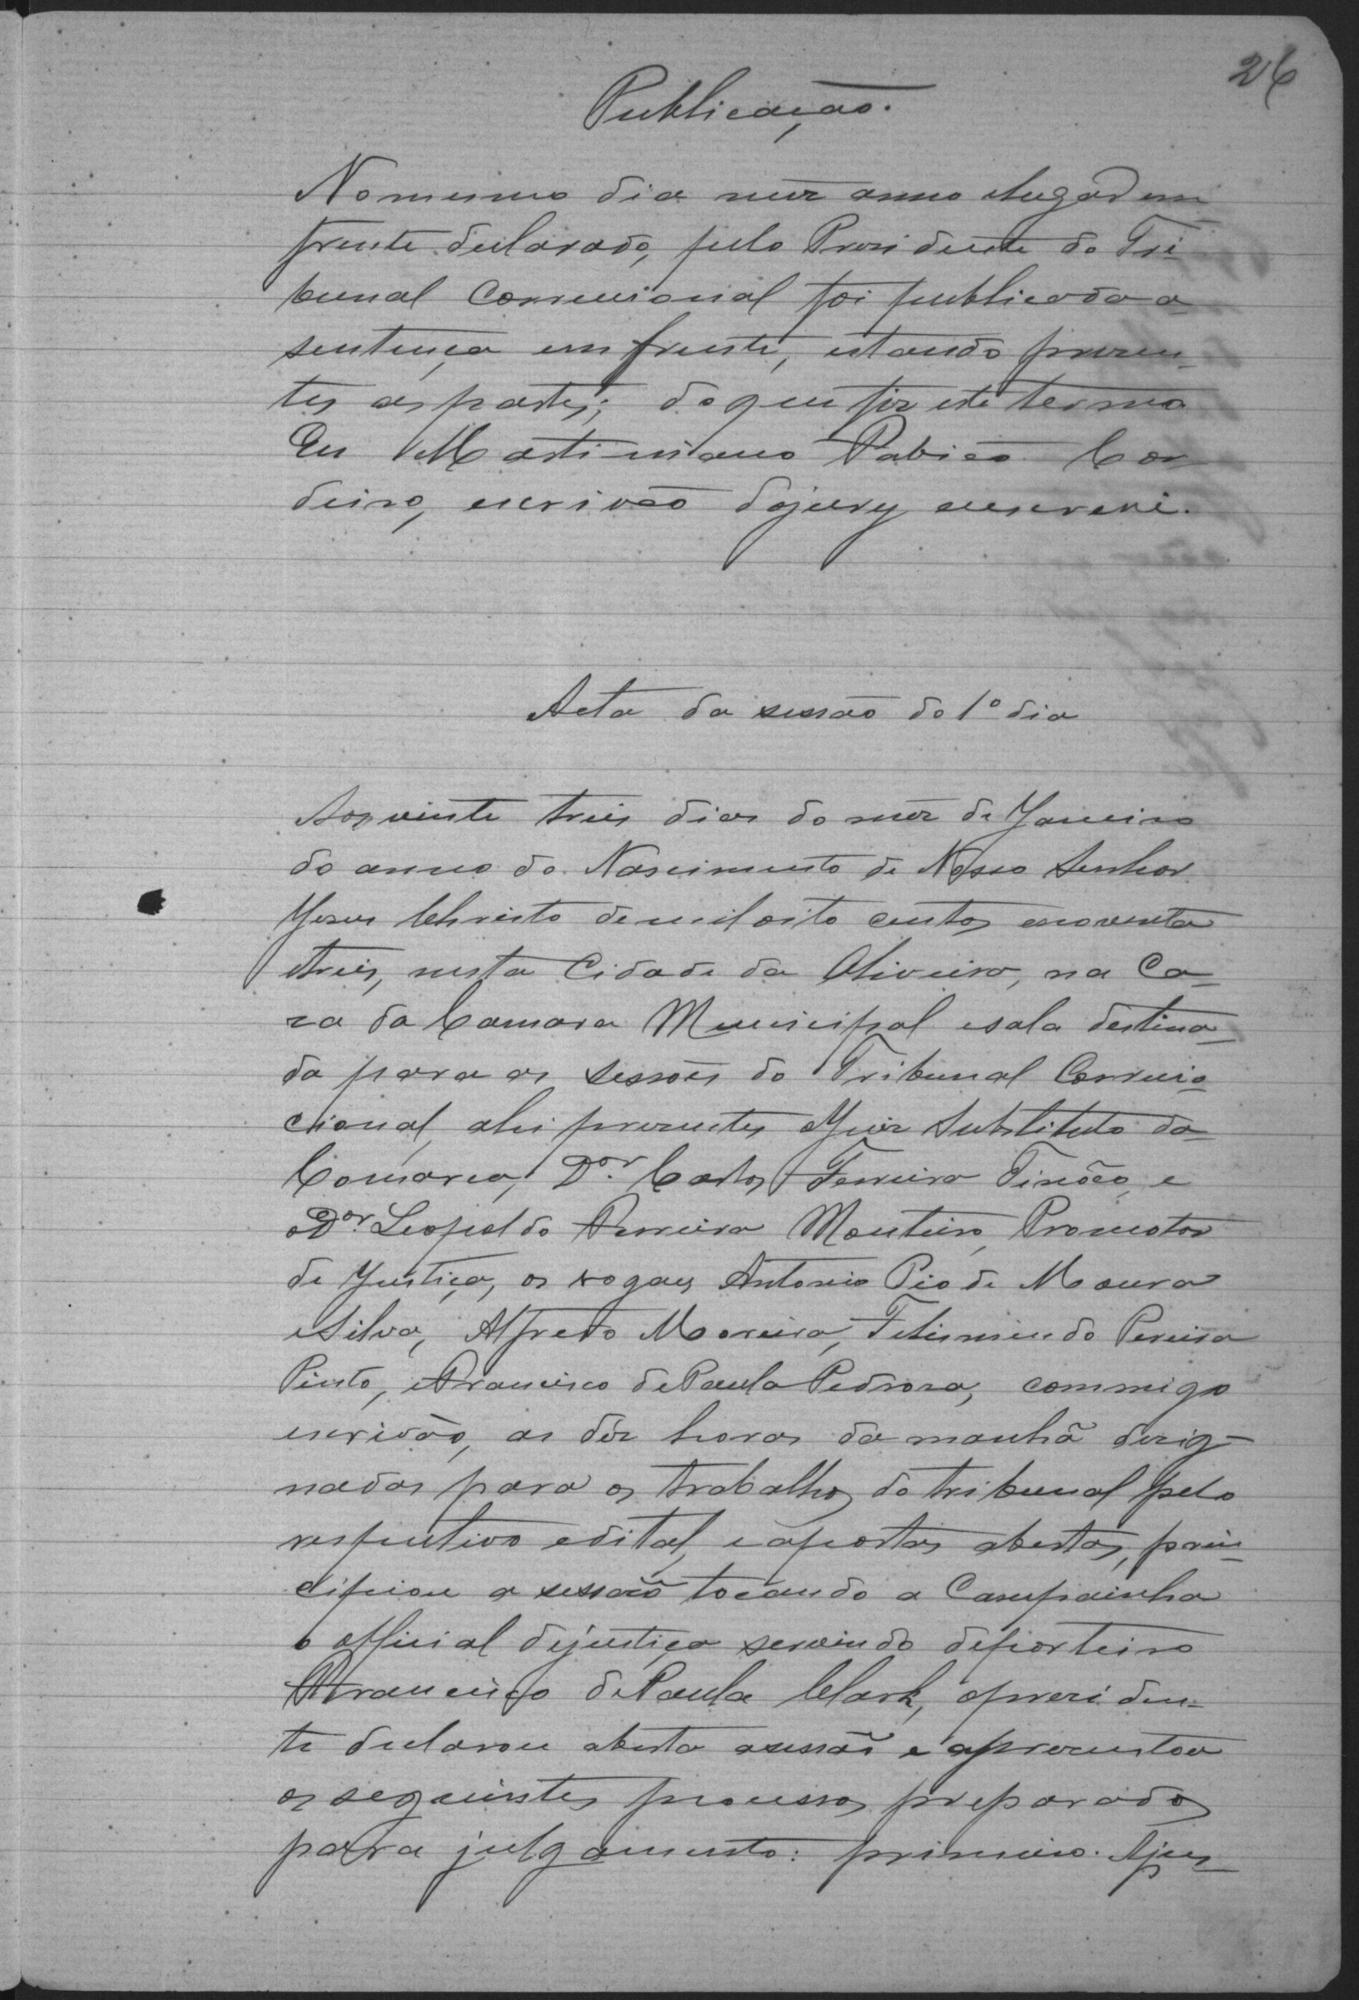 26
Publicação.
No mesmo dia mez anno elugar em
frente declarado, pelo Presidente do Tri-
bunal Correccional foi publicada a
sentença em frente, estando presen-
tes as partes; do que fiz este termo
Eu Martiniano Cor-
deiro, escrivão dojury escrevi.
Acta da sessão do 1º dia
Aos vinte treis dias do mez de Janeiro
do anno do Nascimento de Nosso Senhor
Jesus Christo de mil oito centos enoventa
etreis, nesta Cidade da Oliveira, na Ca-
za da Camara Municipal esala destina-
da para as sessões do Tribunal Correic-
cional, ahi presentes oJuiz Substituto da
Comarca, Dor. Carlos Ferreira Tinôco, e
oDor Leopoldo Ferreira Monteiro, Promotor
de Justiça, os vogaes Antonio Pio de Moura
eSilva, Alfredo Moreira, Felismindo Pereira
Pinto, eFrancisco de Paula Pedroza, commigo
escrivão, as déz horas da manhã desig-
nadas para os trabalhos do tribunal pelo
respectivo edital, e aportas abertas, prin-
cipiou a sessão tocando a Campainha
o official dejustiça servindo deporteiro
Francisco dePaula Clark, opresiden-
te declarou aberta asessão e apresentou
os seguintes processos preparados
para julgamento: primeiro. Ajus-